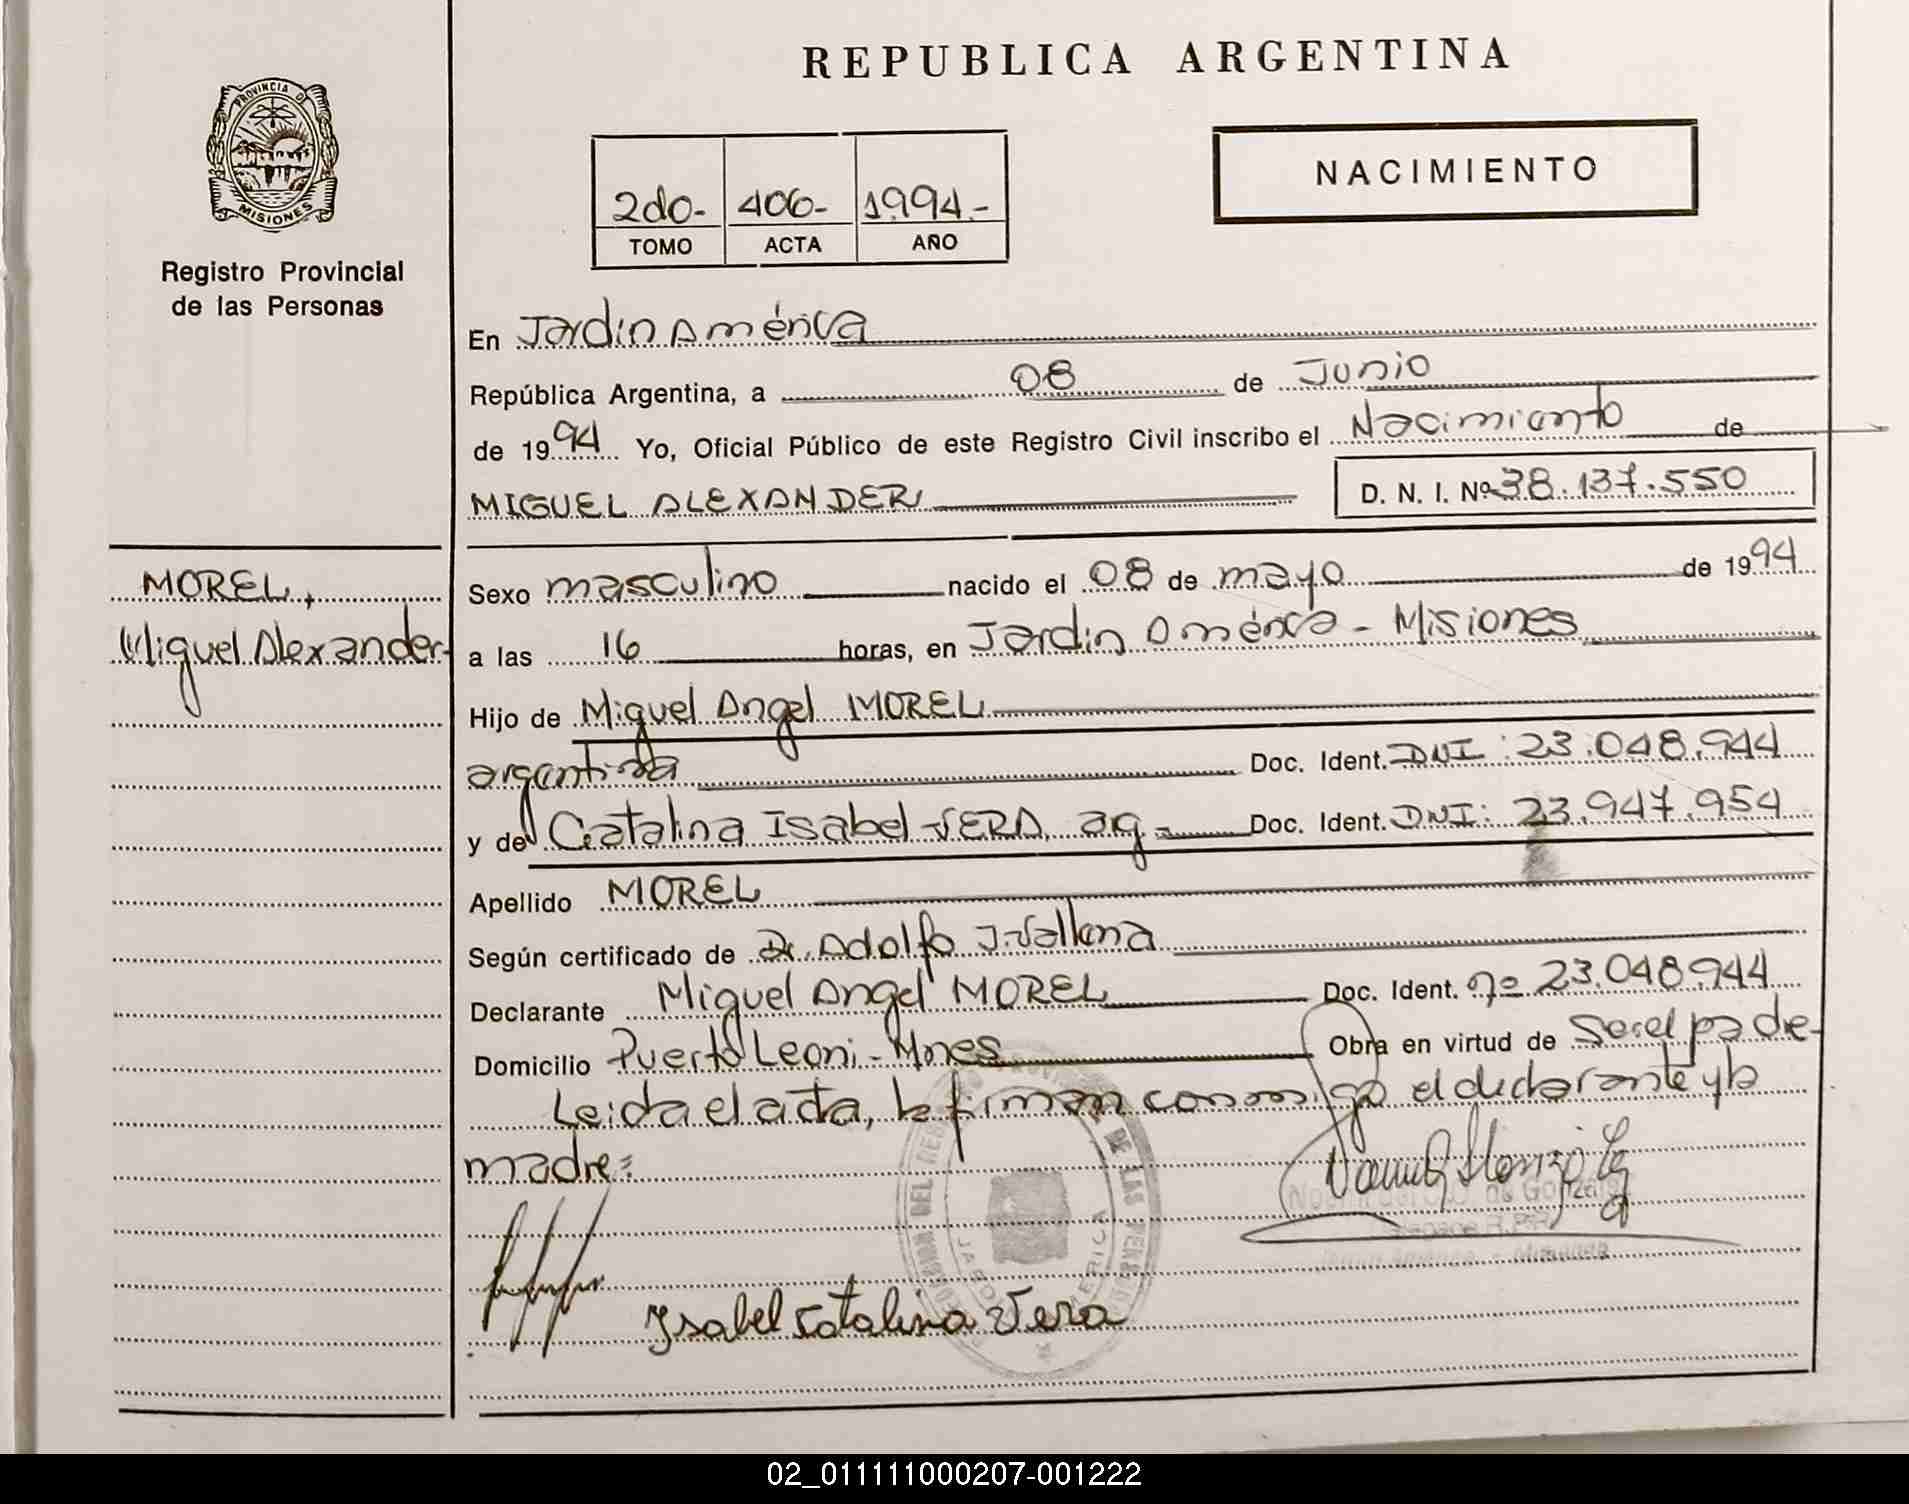 REPUBLICA ARGENTINA
PROVINCIA DE
MISIONES
Registro Provincial
de las Personas
NACIMIENTO
2do- 406- 1994.-
TOMO ACTA AÑO
En Jardín América
República Argentina, a 08 de Junio
de 1994 Yo, Oficial Público de este Registro Civil inscribo el Nacimiento de
MIGUEL ALEXANDER D. N. I. Nº 38.137.550
MOREL,
Miguel Alexander-
Sexo masculino nacido el 08 de mayo de 1994
a las 16 horas, en Jardín América - Misiones
Hijo de Miguel Angel MOREL
argentina Doc. Ident. DNI: 23.048.944
y de Catalina Isabel VERA, ag - Doc. Ident. DNI: 23.947.954
Apellido MOREL
Según certificado de Dr. Adolfo J.
Declarante Miguel Angel MOREL Doc. Ident. nº 23.048.944
Domicilio Puerto Leoni - Mnes Obra en virtud de Ser el padre-
Leida el acta, la firman conmigo el declarante y la
madre:
DE LAS PERSONAS
AMERICA
de Gonzalez
Ysabel Catalina Vera
02_011111000207-001222